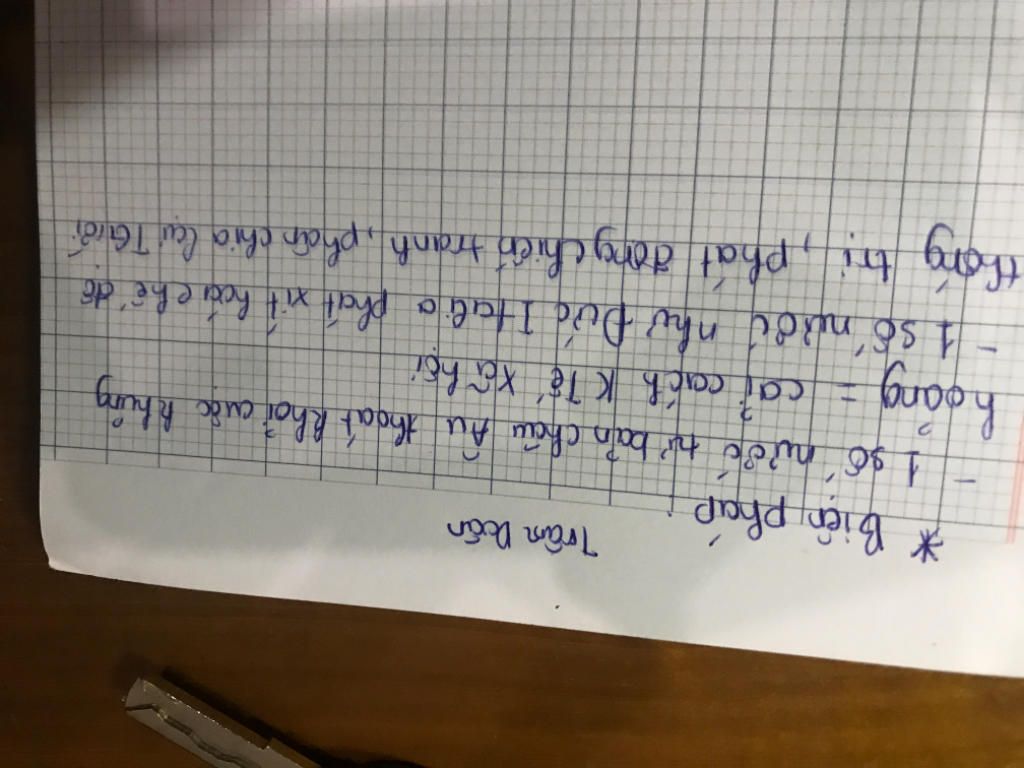 Trân Dần
* Biện pháp:
- 1 số nước tư bản châu Âu thoát khỏi cuộc khủng
hoảng = cải cách KTế xã hội
- 1 số nước như Đức Italia phát xít hóa chế độ
thống trị, phát động chiến tranh, phân chia lại TGiới.